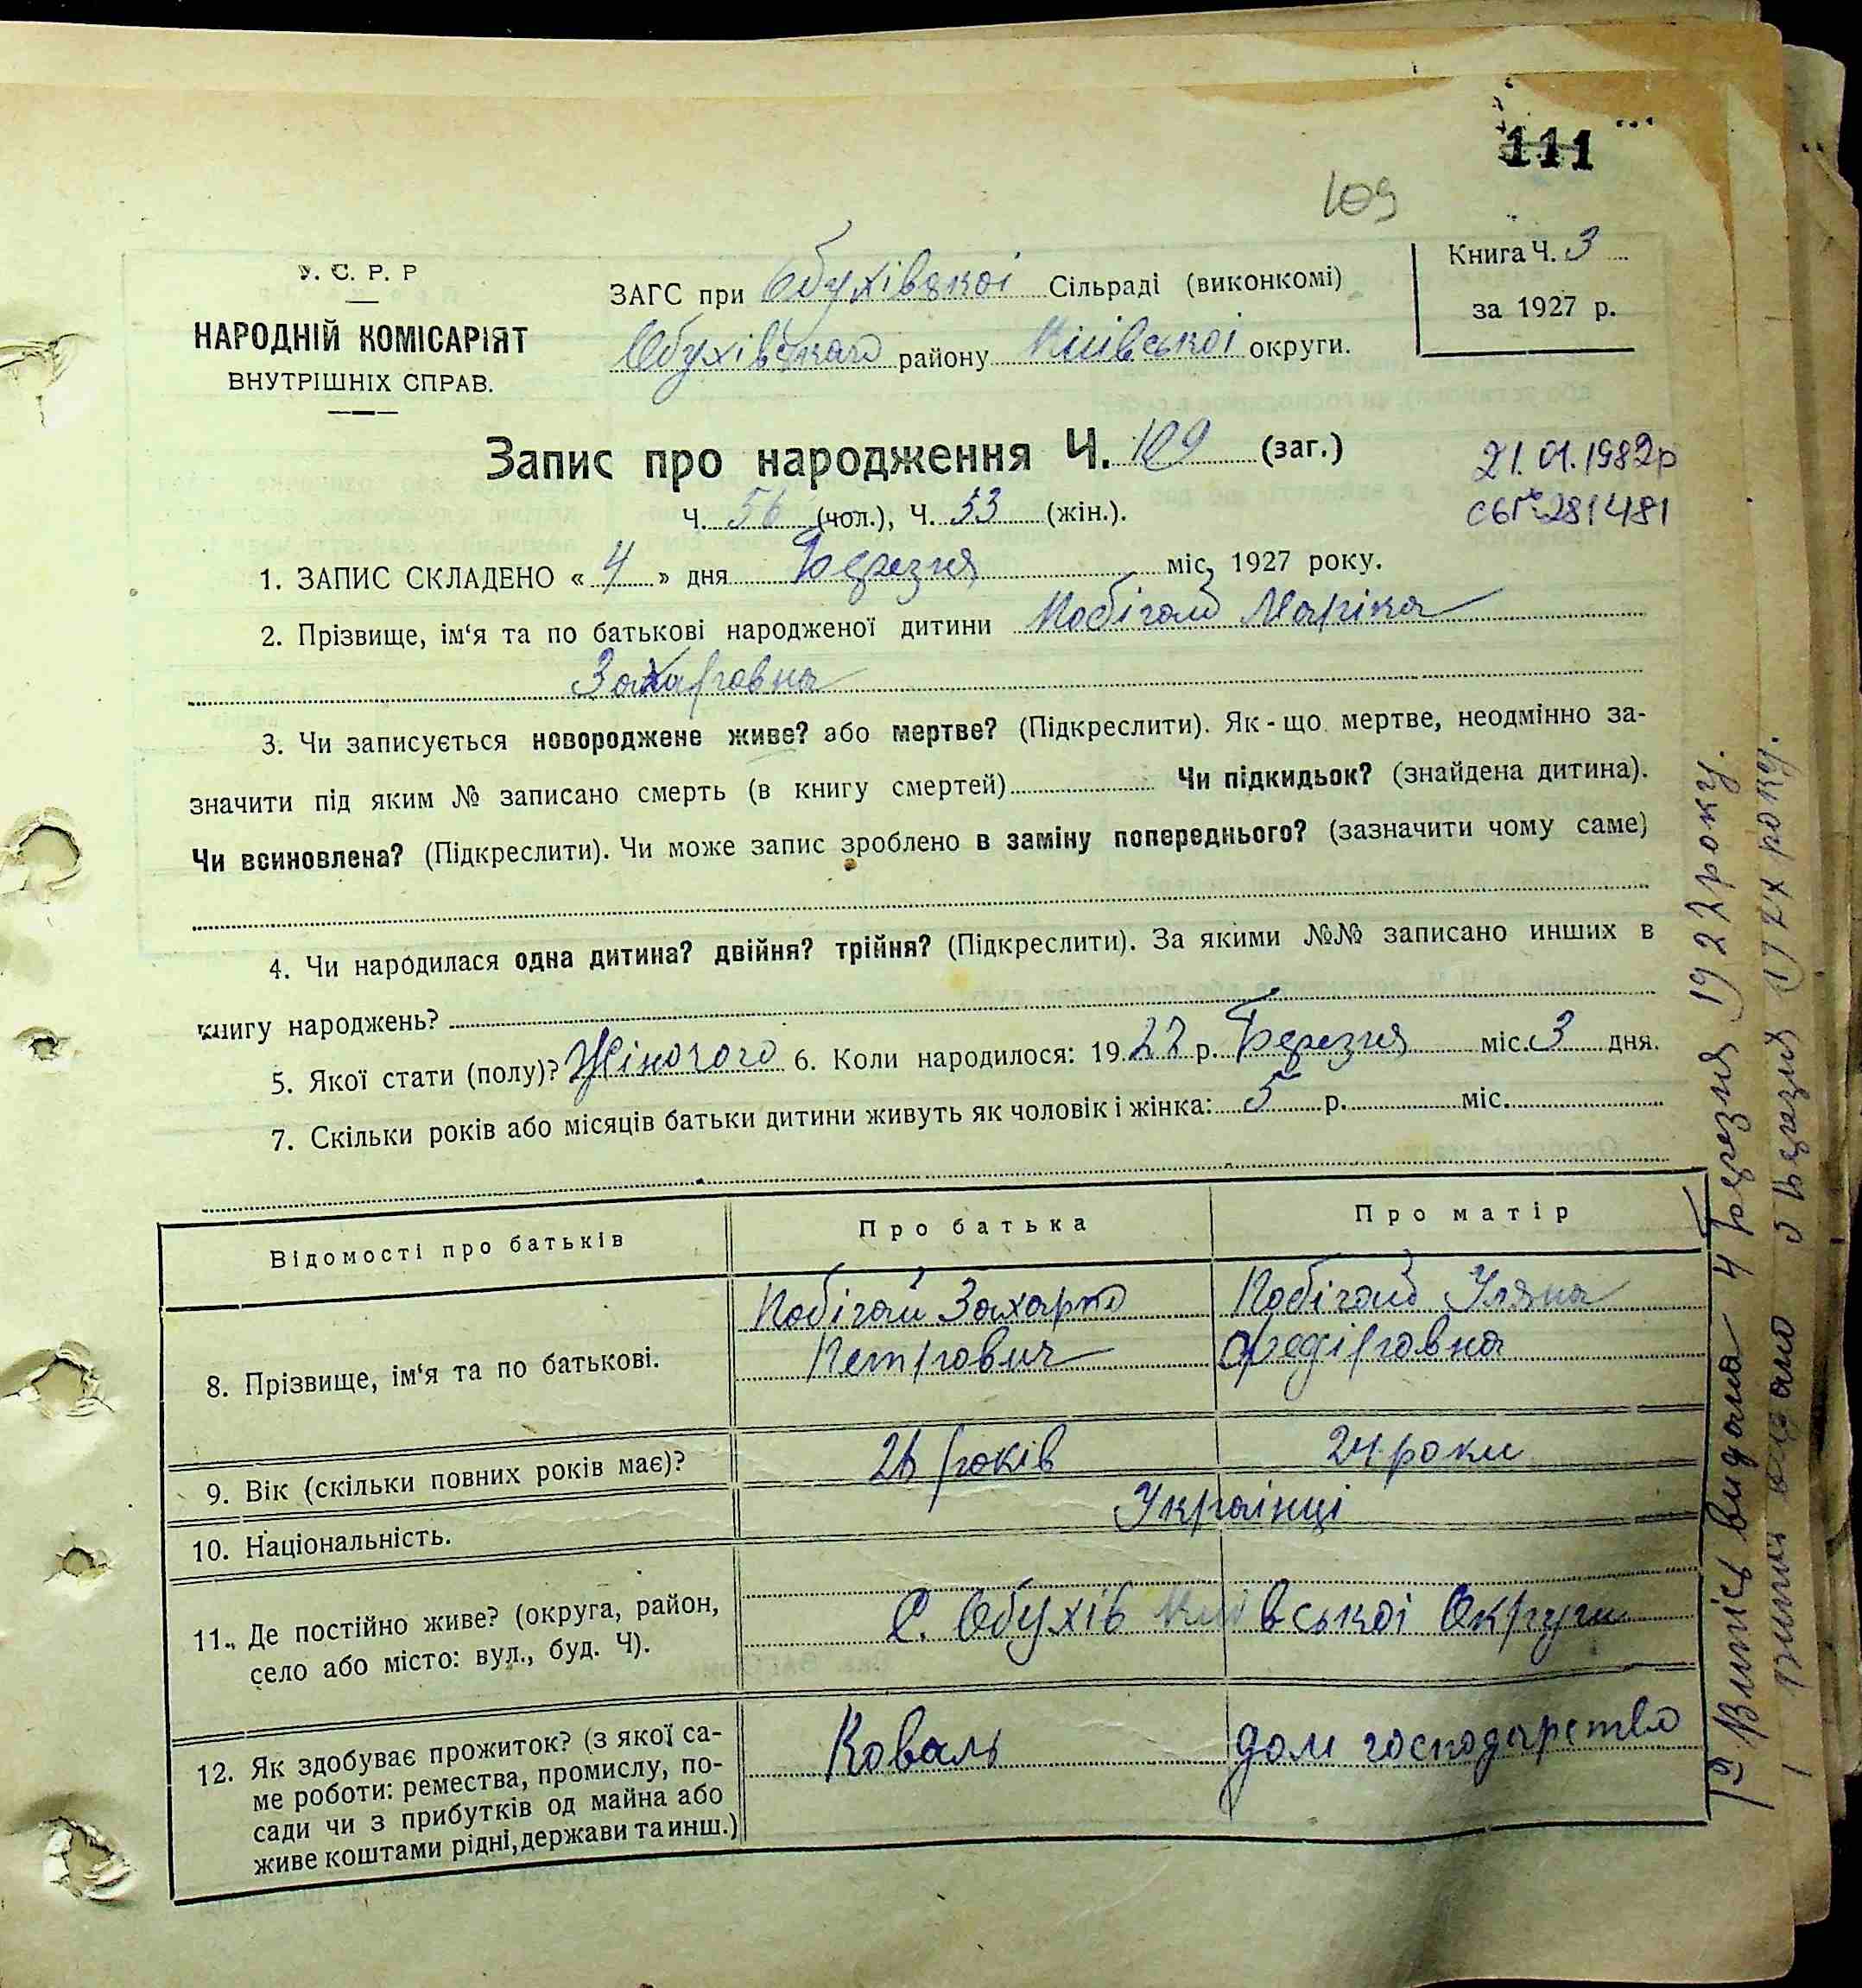 111
109
У. С. Р. Р
НАРОДНІЙ КОМІСАРІЯТ
ВНУТРІШНІХ СПРАВ.
ЗАГС при Обухівскоі Сільраді (виконкомі)
Обухівскаго району Київськоі округи.
Книга Ч. 3
за 1927 р.
Запис про народження Ч. 109 (заг.)
Ч. 56 (чол.), Ч. 53 (жін.).
21.01.1982р
281481
1. ЗАПИС СКЛАДЕНО « 4 » дня Березня міс, 1927 року.
2. Прізвище, ім‘я та по батькові народженої дитини Побігай Маріка
Захаровна
3. Чи записується новороджене живе? або мертве? (Підкреслити). Як - що мертве, неодмінно за-
значити під яким № записано смерть (в книгу смертей) Чи підкидьок? (знайдена дитина).
Чи всиновлена? (Підкреслити). Чи може запис зроблено в заміну попереднього? (зазначити чому саме)
4. Чи народилася одна дитина? двійня? трійня? (Підкреслити). За якими №№ записано инших в
книгу народжень?
5. Якої стати (полу)? Жіночого 6. Коли народилося: 1927 р. Березня міс. 3 дня.
7. Скільки років або місяців батьки дитини живуть як чоловік і жінка: 5 р. міс.
Відомості про батьків Про батька Про матір
8. Прізвище, ім‘я та по батькові. Побігай Захарко Побігай Уляна
Петрович Федіровна
9. Вік (скільки повних років має)? років 24 роки
10. Національність. Украінці
11. Де постійно живе? (округа, район,
село або місто: вул., буд. Ч).
С. Обухів Київськоі Округи
12. Як здобуває прожиток? (з якої са-
ме роботи: ремества, промислу, по-
сади чи з прибутків од майна або
живе коштами рідні, держави та инш.)
Коваль дом господарство
Випісь видана 4 Березня 1927 року.
Березня 1927 року.